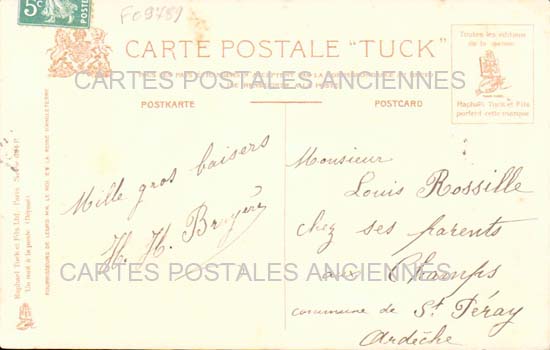 5c
F09781
CARTE POSTALE "TUCK"
CARTES POSTALES ANCIENNES
POSTKARTE
POSTCARD
Toutes les éditions
de la maison
Raphaël Tuck et Fils
portent cette marque
Raphael Tuck et Fils, Ltd., Paris
FOURNISSEURS DE LEURS MM. LE ROI ET LA REINE D'ANGLETERRE
Mille gros baisers
H. H. Bruyère
Monsieur
Louis Rossille
chez ses parents
aux Champs
commune de St Péray
Ardèche
CARTES POSTALES ANCIENNES